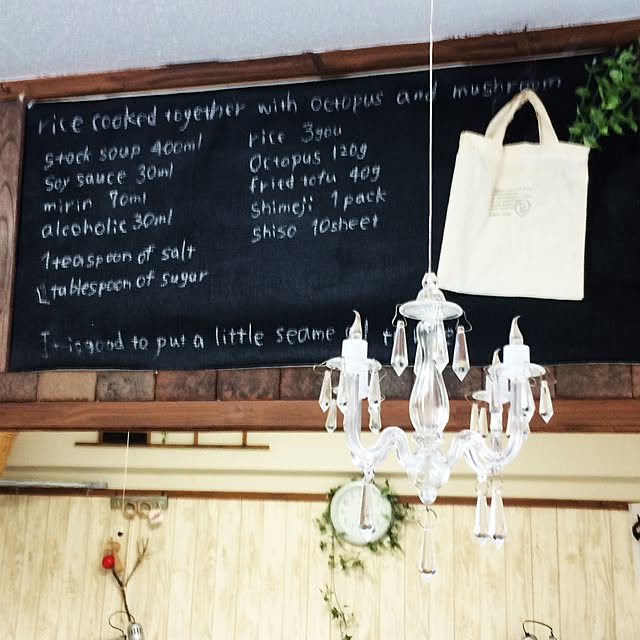 rice cooked together with octopus and mushroom
stock soup 400ml
soy sauce 30ml
mirin 90ml
alcoholic 30ml
1 teaspoon of salt
1 tablespoon of sugar
rice 3gou
octopus 120g
fried tofu 40g
shimeji 1 pack
shiso 10sheet
is good to put a little seame